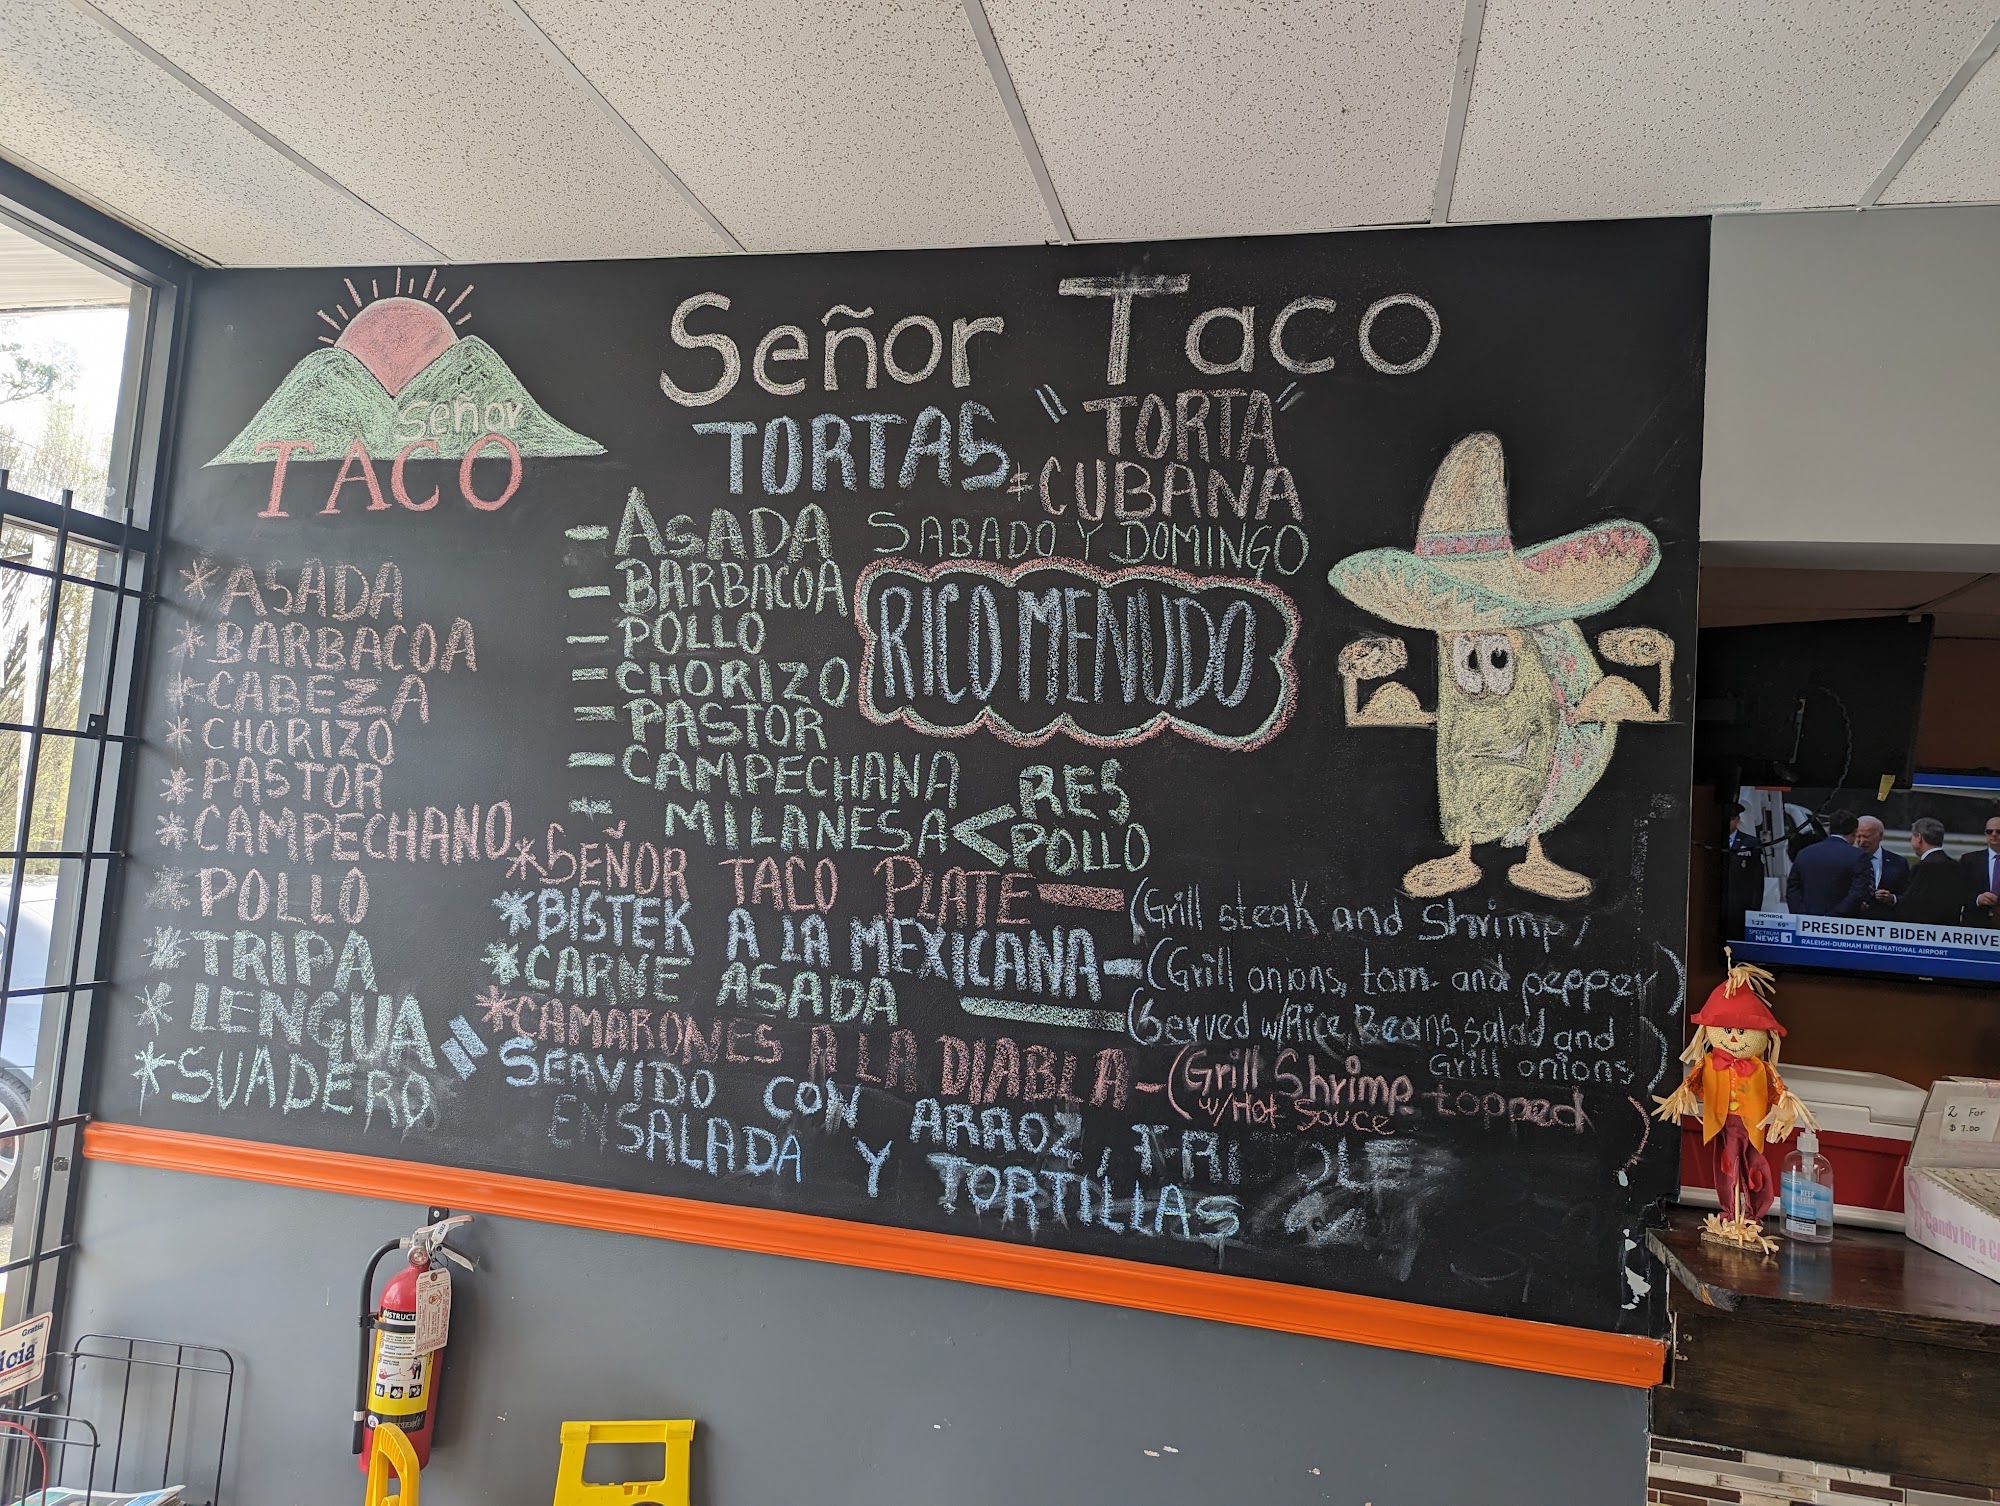 Señor Taco
señor
TACO
* ASADA
* BARBACOA
* CABEZA
* CHORIZO
* PASTOR
* CAMPECHANO
* POLLO
* TRIPA
* LENGUA
* SUADERO
TORTAS
- ASADA
- BARBACOA
- POLLO
= CHORIZO
= PASTOR
= CAMPECHANA
MILANESA < RES
POLLO
"TORTA"
CUBANA
SABADO Y DOMINGO
RICO MENUDO
* SEÑOR TACO PLATE - (Grill steak and Shrimp,
* BISTEK A LA MEXICANA - (Grill onions, tom. and pepper)
* CARNE ASADA - (Served w/Rice, Beans, salad and
Grill onions)
* CAMARONES A LA DIABLA - (Grill Shrimp topped
w/Hot Souce )
= SERVIDO CON ARROZ,
ENSALADA Y TORTILLAS
MONROE
1:23 69°
SPECTRUM
NEWS 1
PRESIDENT BIDEN ARRIVE
RALEIGH-DURHAM INTERNATIONAL AIRPORT
2 For
$ 7.00
Candy for a C
KEEP
INSTRUCT
Gratis
icia